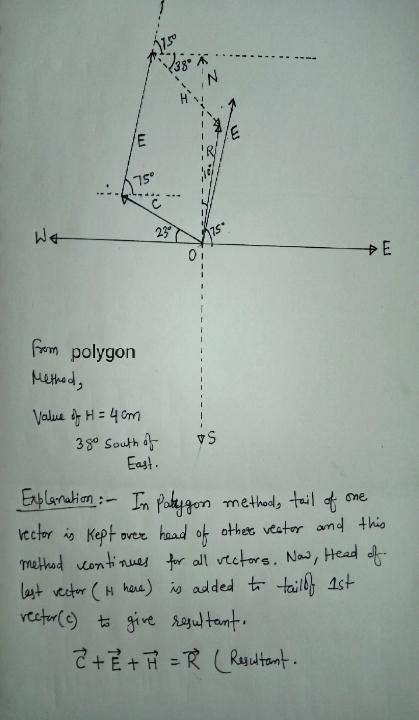 75°
38°
N
H
E
E
R
10°
75°
C
23°
75°
W
O
E
From polygon
Method,
Value of H = 4 cm
38° South of
East.
S
Explanation :- In Polygon method, tail of one
vector is kept over head of other vector and this
method continues for all vectors. Now, Head of
last vector ( H here) is added to tail of 1st
vector(c) to give resultant.
C⃗ + E⃗ + H⃗ = R⃗ ( Resultant.